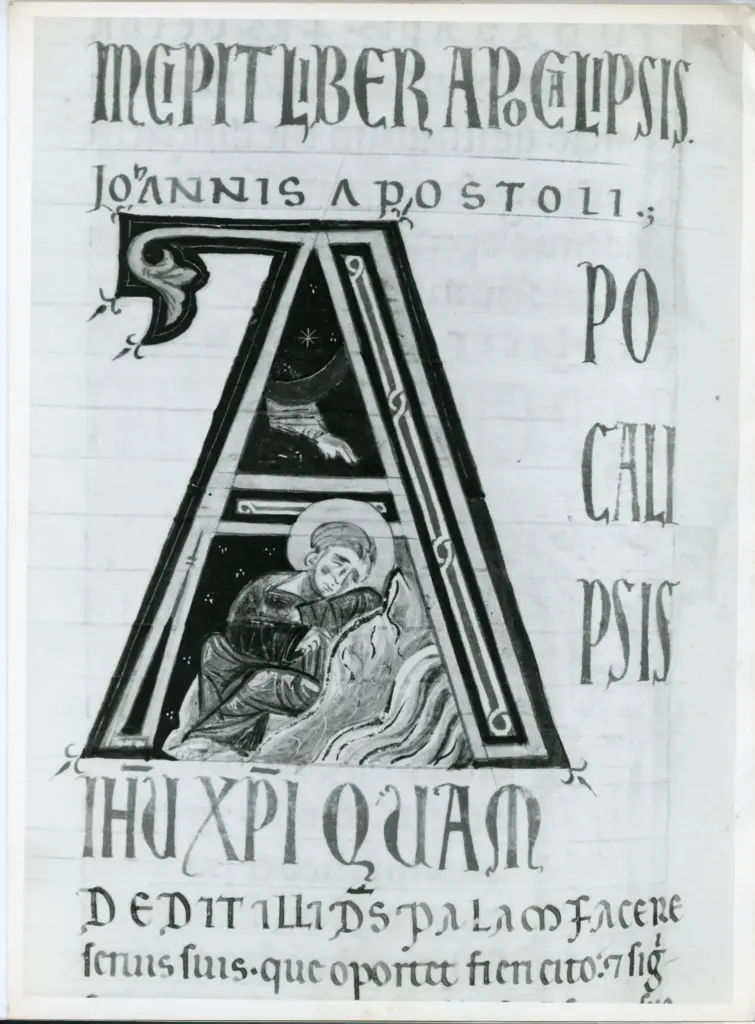 INCIPIT LIBER APOCALIPSIS.
JOhANNIS APOSTOLI.;
A
PO
CALI
PSIS
IHU̅ XP̅I QUAM
DEDIT ILLI D̅S PALAM FACERE
seruis suis. que oportet fieri cito: ⁊ sig